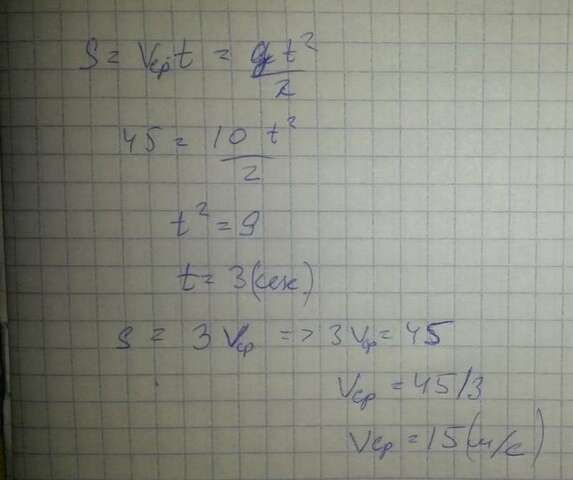 S = Vср·t = gt²/2
45 = 10 t²/2
t² = 9
t = 3 (сек)
S = 3 Vср => 3 Vср = 45
Vср = 45/3
Vср = 15 (м/с)